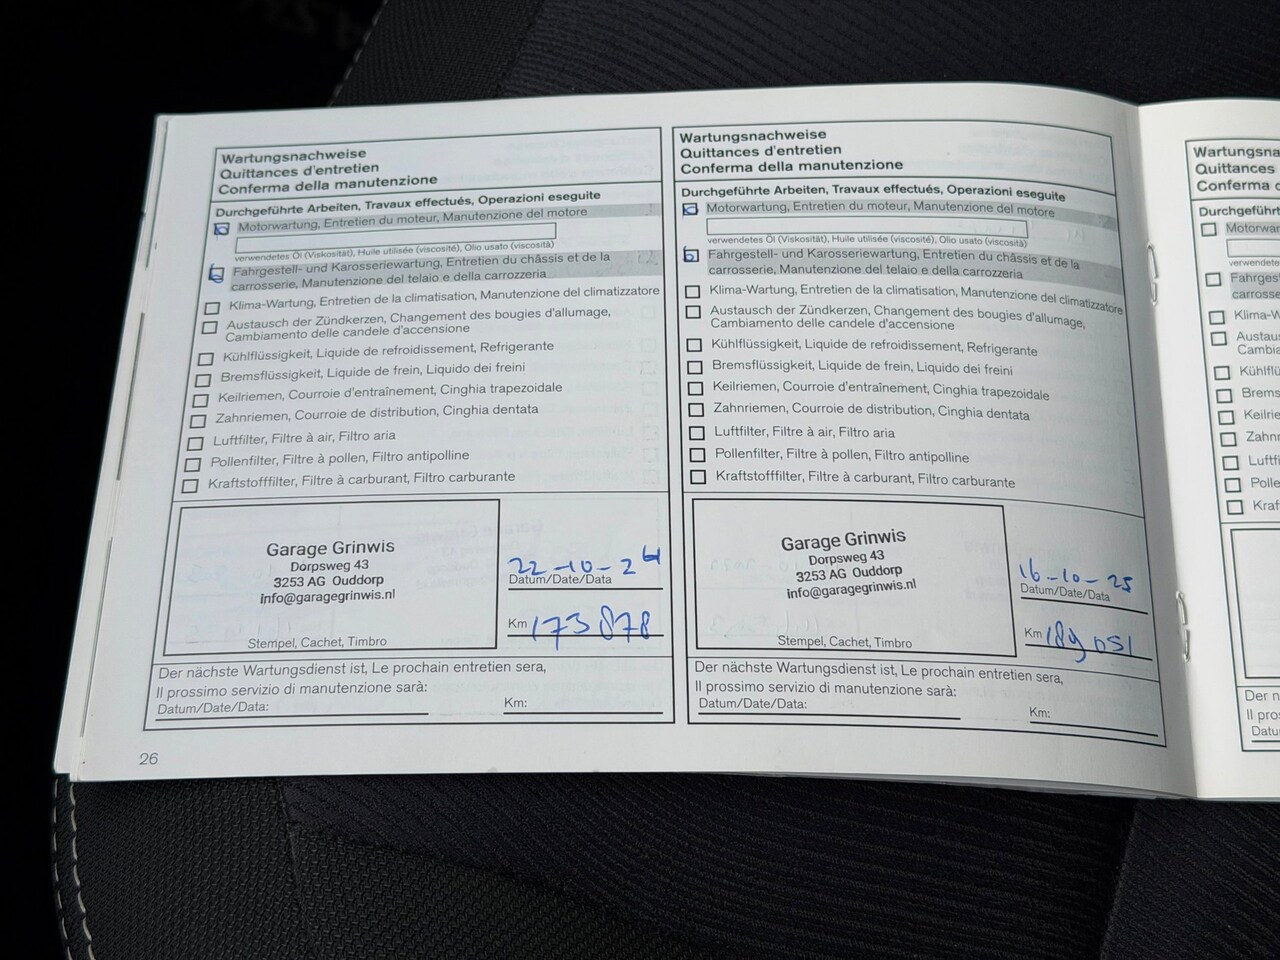 Wartungsnachweise
Quittances d'entretien
Conferma della manutenzione
Durchgeführte Arbeiten, Travaux effectués, Operazioni eseguite
Motorwartung, Entretien du moteur, Manutenzione del motore
verwendetes Öl (Viskosität), Huile utilisée (viscosité), Olio usato (viscosità)
Fahrgestell- und Karosseriewartung, Entretien du châssis et de la
carrosserie, Manutenzione del telaio e della carrozzeria
Klima-Wartung, Entretien de la climatisation, Manutenzione del climatizzatore
Austausch der Zündkerzen, Changement des bougies d'allumage,
Cambiamento delle candele d'accensione
Kühlflüssigkeit, Liquide de refroidissement, Refrigerante
Bremsflüssigkeit, Liquide de frein, Liquido dei freini
Keilriemen, Courroie d'entraînement, Cinghia trapezoidale
Zahnriemen, Courroie de distribution, Cinghia dentata
Luftfilter, Filtre à air, Filtro aria
Pollenfilter, Filtre à pollen, Filtro antipolline
Kraftstofffilter, Filtre à carburant, Filtro carburante
Garage Grinwis
Dorpsweg 43
3253 AG Ouddorp
info@garagegrinwis.nl
Stempel, Cachet, Timbro
22-10-24
Datum/Date/Data
Km 173878
Der nächste Wartungsdienst ist, Le prochain entretien sera,
Il prossimo servizio di manutenzione sarà:
Datum/Date/Data:
Km:
26
Wartungsnachweise
Quittances d'entretien
Conferma della manutenzione
Durchgeführte Arbeiten, Travaux effectués, Operazioni eseguite
Motorwartung, Entretien du moteur, Manutenzione del motore
verwendetes Öl (Viskosität), Huile utilisée (viscosité), Olio usato (viscosità)
Fahrgestell- und Karosseriewartung, Entretien du châssis et de la
carrosserie, Manutenzione del telaio e della carrozzeria
Klima-Wartung, Entretien de la climatisation, Manutenzione del climatizzatore
Austausch der Zündkerzen, Changement des bougies d'allumage,
Cambiamento delle candele d'accensione
Kühlflüssigkeit, Liquide de refroidissement, Refrigerante
Bremsflüssigkeit, Liquide de frein, Liquido dei freini
Keilriemen, Courroie d'entraînement, Cinghia trapezoidale
Zahnriemen, Courroie de distribution, Cinghia dentata
Luftfilter, Filtre à air, Filtro aria
Pollenfilter, Filtre à pollen, Filtro antipolline
Kraftstofffilter, Filtre à carburant, Filtro carburante
Garage Grinwis
Dorpsweg 43
3253 AG Ouddorp
info@garagegrinwis.nl
Stempel, Cachet, Timbro
16-10-25
Datum/Date/Data
Km 189051
Der nächste Wartungsdienst ist, Le prochain entretien sera,
Il prossimo servizio di manutenzione sarà:
Datum/Date/Data:
Km:
Quittances
Conferma